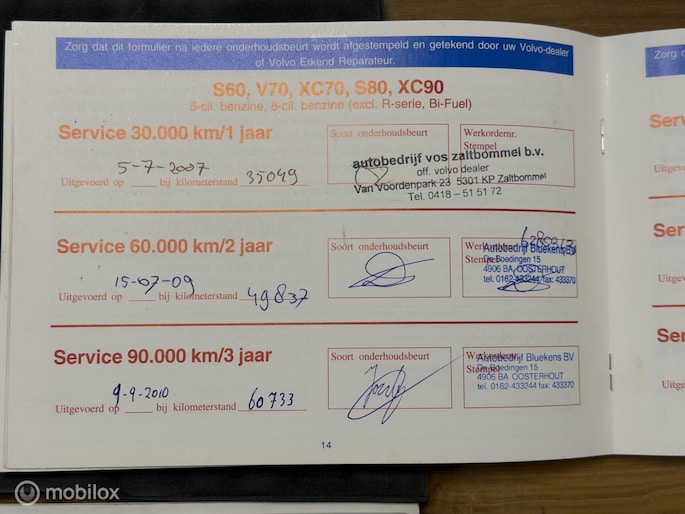 Zorg dat dit formulier na iedere onderhoudsbeurt wordt afgestempeld en getekend door uw Volvo-dealer
of Volvo Erkend Reparateur.
S60, V70, XC70, S80, XC90
5-cil. benzine, 6-cil. benzine (excl. R-serie, Bi-Fuel)
Service 30.000 km/1 jaar
Soort onderhoudsbeurt
Werkordernr.
Stempel
autobedrijf vos zaltbommel b.v.
off. volvo dealer
Van Voordenpark 23 5301 KP Zaltbommel
Tel. 0418 – 51 51 72
5-7-2007
Uitgevoerd op ____ bij kilometerstand 35049
Service 60.000 km/2 jaar
Soort onderhoudsbeurt
Werkordernr.
Stempel
Autobedrijf Bluekens BV
De Boedingen 15
4906 BA OOSTERHOUT
tel. 0162-433244 fax: 433370
15-07-09
Uitgevoerd op ____ bij kilometerstand 49837
Service 90.000 km/3 jaar
Soort onderhoudsbeurt
Werkordernr.
Stempel
Autobedrijf Bluekens BV
De Boedingen 15
4906 BA OOSTERHOUT
tel. 0162-433244 fax: 433370
9-9-2010
Uitgevoerd op ____ bij kilometerstand 60733
14
Serv
Uitgev
Se
Uitge
Se
Uitg
mobilox